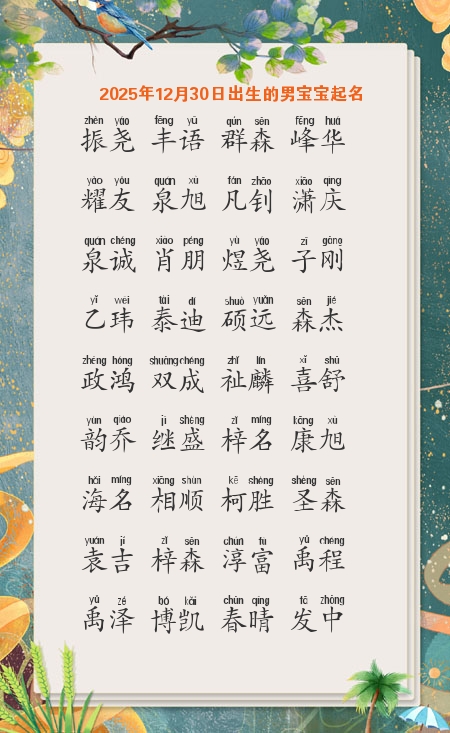 2025年12月30日出生的男宝宝起名
zhèn yáo fēng yǔ qún sēn fēng huá
振尧 丰语 群森 峰华
yào yǒu quán xù fán zhāo xiāo qìng
耀友 泉旭 凡钊 潇庆
quán chéng xiào péng yù yáo zǐ gāng
泉诚 肖朋 煜尧 子刚
yǐ wěi tài dí shuò yuǎn sēn jié
乙玮 泰迪 硕远 森杰
zhèng hóng shuāng chéng zhǐ lín xǐ shū
政鸿 双成 祉麟 喜舒
yùn qiáo jì shèng zǐ míng kāng xù
韵乔 继盛 梓名 康旭
hǎi míng xiāng shùn kē shèng shèng sēn
海名 相顺 柯胜 圣森
yuán jí zǐ sēn chún fù yǔ chéng
袁吉 梓森 淳富 禹程
yǔ zé bó kǎi chūn qíng fā zhōng
禹泽 博凯 春晴 发中